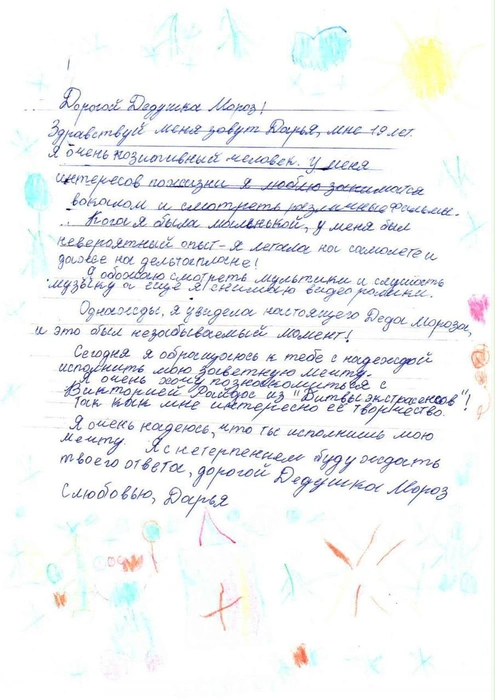 Дорогой Дедушка Мороз!
Здравствуй меня зовут Дарья, мне 19 лет.
Я очень позитивный человек. У меня
интересов по жизни я люблю заниматся
вокалом и смотреть различные фильмы.
Когда я была маленькой, у меня был
невероятный опыт - я летала на самолете и
даже на дельтаплане!
Я обожаю смотреть мультики и слушать
музыку а ещё я снимаю видеоролики.
Однажды, я увидела настоящего Деда Мороза,
и это был незабываемый момент!
Сегодня я обращаюсь к тебе с надеждой
исполнить мою заветную мечту.
Я очень хочу познакомиться с
Викторией Райдос из "Битвы экстрасенсов"!
Так как мне интересно её творчество.
Я очень надеюсь, что ты исполнишь мою
мечту. Я с нетерпением буду ждать
твоего ответа, дорогой Дедушка Мороз
С любовью, Дарья